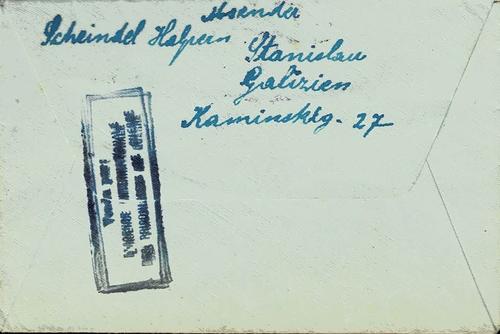 Absender
Scheindel Halpern
Stanislau
Galizien
Kaminskig. 27
Vu/a par:
L'AGENCE INTERNATIONALE
DES PRISONNIERS DE GUERRE